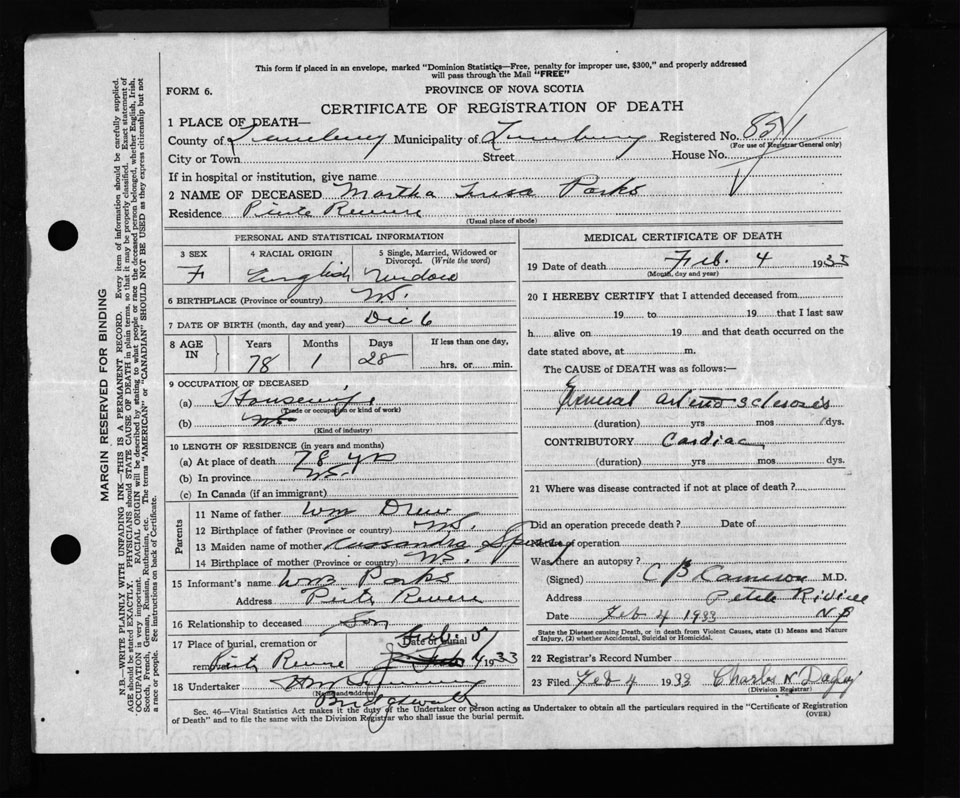 This form if placed in an envelope, marked "Dominion Statistics—Free, penalty for improper use, $300," and properly addressed
will pass through the Mail "FREE"
FORM 6.
PROVINCE OF NOVA SCOTIA
CERTIFICATE OF REGISTRATION OF DEATH
1 PLACE OF DEATH—
County of Lunenburg Municipality of Lunenburg Registered No.
(For use of Registrar General only)
City or Town Street House No.
If in hospital or institution, give name
2 NAME OF DECEASED Martha Teresa Parks
Residence Petite Riviere
(Usual place of abode)
PERSONAL AND STATISTICAL INFORMATION
3 SEX 4 RACIAL ORIGIN 5 Single, Married, Widowed or
Divorced. (Write the word)
F English Widow
6 BIRTHPLACE (Province or country) N.S.
7 DATE OF BIRTH (month, day and year) Dec 6
8 AGE IN Years Months Days If less than one day,
78 1 28 hrs. or min.
9 OCCUPATION OF DECEASED
(a) Housewife
(Trade or occupation or kind of work)
(b)
(Kind of industry)
10 LENGTH OF RESIDENCE (in years and months)
(a) At place of death 78 yrs
(b) In province N.S.
(c) In Canada (if an immigrant)
Parents
11 Name of father Wm Drew
12 Birthplace of father (Province or country) N.S.
13 Maiden name of mother Cassandra Sperry
14 Birthplace of mother (Province or country) N.S.
15 Informant's name Wm Parks
Address Petite Riviere
16 Relationship to deceased Son
17 Place of burial, cremation or Date of burial
removal Petite Riviere Feb. 5 1933
18 Undertaker
(Name and address)
Bridgewater
MEDICAL CERTIFICATE OF DEATH
19 Date of death Feb. 4 1933
(Month, day and year)
20 I HEREBY CERTIFY that I attended deceased from
19 to 19 that I last saw
h alive on 19 and that death occurred on the
date stated above, at m.
The CAUSE of DEATH was as follows:—
General arterio sclerosis
(duration) yrs mos dys.
CONTRIBUTORY Cardiac
(duration) yrs mos dys.
21 Where was disease contracted if not at place of death?
Did an operation precede death? Date of
Nature of operation
Was there an autopsy?
(Signed) C B Cameron M.D.
Address Petite Riviere
Date Feb 4 1933
State the Disease causing Death, or in death from Violent Causes, state (1) Means and Nature
of Injury, (2) whether Accidental, Suicidal or Homicidal.
22 Registrar's Record Number
23 Filed Feb 4 1933 Charles N Dagley
(Division Registrar)
Sec. 46—Vital Statistics Act makes it the duty of the Undertaker or person acting as Undertaker to obtain all the particulars required in the "Certificate of Registration
of Death" and to file the same with the Division Registrar who shall issue the burial permit.
(OVER)
MARGIN RESERVED FOR BINDING
N.B.—WRITE PLAINLY WITH UNFADING INK—THIS IS A PERMANENT RECORD. Every item of information should be carefully supplied.
AGE should be stated EXACTLY. PHYSICIANS should STATE CAUSE OF DEATH in plain terms, so that it may be properly classified. Exact statement of
OCCUPATION is very important. RACIAL ORIGIN will be described by stating to what people or race the deceased person belonged, whether English, Irish,
Scotch, French, German, Russian, Ruthenian, etc. The terms "AMERICAN" or "CANADIAN" SHOULD NOT BE USED as they express citizenship but not
a race or people. See instructions on back of Certificate.